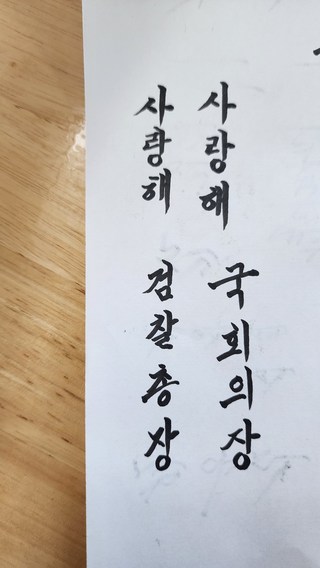 사랑해 국회의장
사랑해 검찰총장